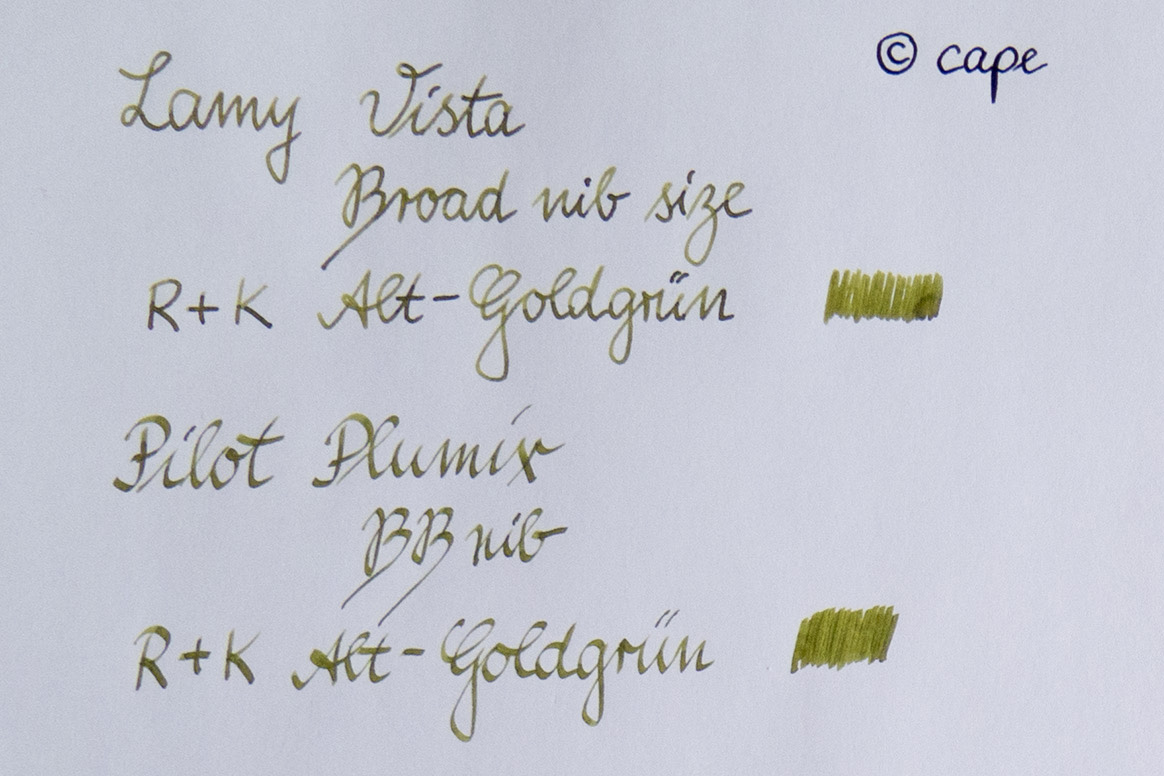 © cape
Lamy Vista
Broad nib size
R+K Alt-Goldgrün
Pilot Plumix
BB nib
R+K Alt-Goldgrün